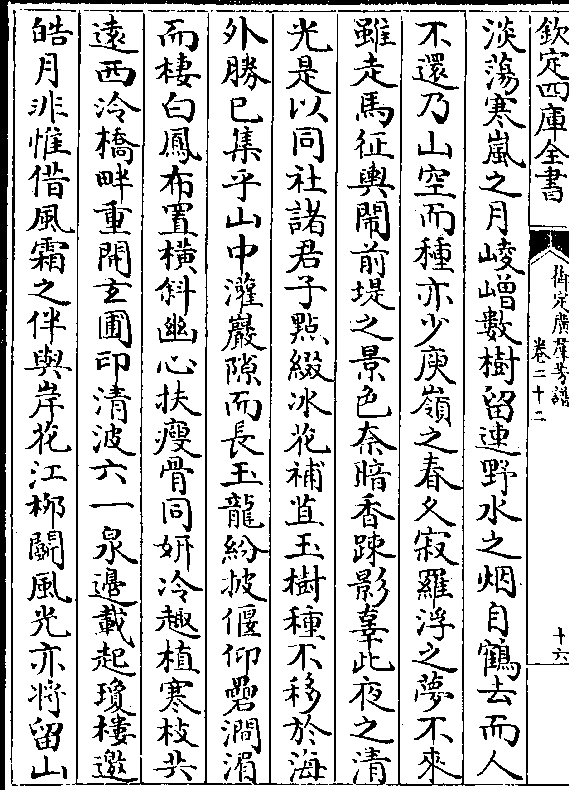 欽定四庫全書
御定廣群芳譜
卷二十二
十六
淡蕩寒嵐之月崚嶒數樹留連野水之烟自鶴去而人
不還乃山空而種亦少庾嶺之春久寂羅浮之夢不來
雖走馬征輿鬧前堤之景色奈暗香疎影辜此夜之清
光是以同社諸君子點綴氷花補苴玉樹種不移於海
外勝已集乎山中灌巖隙而長玉龍紛披偃仰疊澗湄
而棲白鳳布置橫斜幽心扶瘦骨同妍冷趣植寒枝共
遠西泠橋畔重開玄圃印清波六一泉邊載起瓊樓邀
皓月非惟借風霜之伴與岸花江栁鬭風光亦將留山